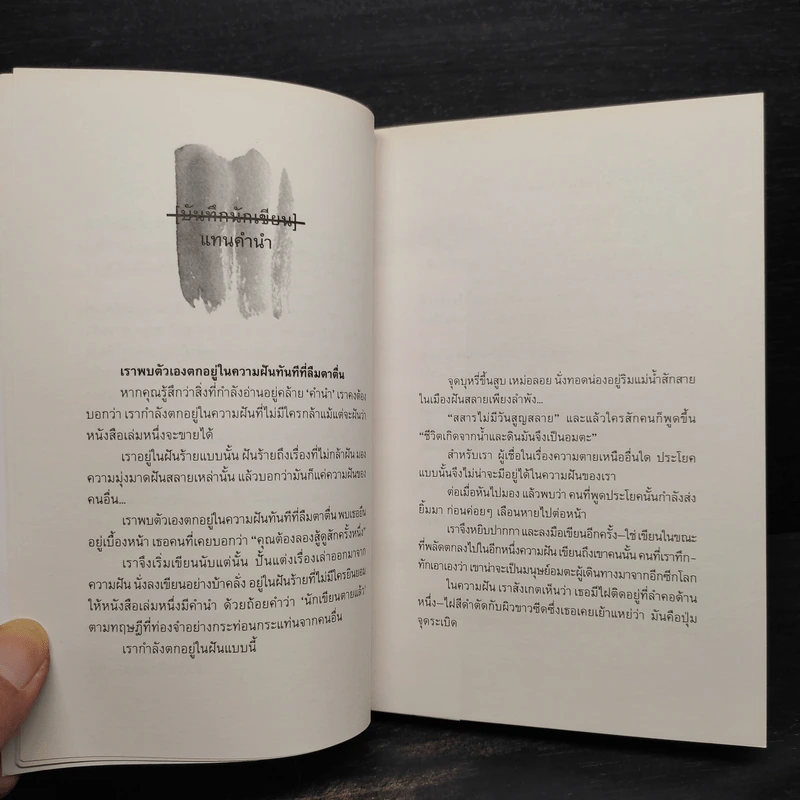 [บันทึกนักเขียน]
แทนคำนำ
เราพบตัวเองตกอยู่ในความฝันทันทีที่ลืมตาตื่น
หากคุณรู้สึกว่าสิ่งที่กำลังอ่านอยู่คล้าย ‘คำนำ’ เราคงต้อง
บอกว่า เรากำลังตกอยู่ในความฝันที่ไม่มีใครกล้าแม้แต่จะฝันว่า
หนังสือเล่มหนึ่งจะขายได้
เราอยู่ในฝันร้ายแบบนั้น ฝันร้ายถึงเรื่องที่ไม่กล้าฝัน มอง
ความมุ่งมาดฝันสลายเหล่านั้น แล้วบอกว่ามันก็แค่ความฝันของ
คนอื่น...
เราพบตัวเองตกอยู่ในความฝันทันทีที่ลืมตาตื่น พบเธอยืน
อยู่เบื้องหน้า เธอคนที่เคยบอกว่า “คุณต้องลองสู้ดูสักครั้งหนึ่ง”
เราจึงเริ่มเขียนนับแต่นั้น ปั้นแต่งเรื่องเล่าออกมาจาก
ความฝัน นั่งลงเขียนอย่างบ้าคลั่ง อยู่ในฝันร้ายที่ไม่มีใครยินยอม
ให้หนังสือเล่มหนึ่งมีคำนำ ด้วยถ้อยคำว่า ‘นักเขียนตายแล้ว’
ตามทฤษฎีที่ท่องจำอย่างกระท่อนกระแท่นจากคนอื่น
เรากำลังตกอยู่ในฝันแบบนี้
จุดบุหรี่ขึ้นสูบ เหม่อลอย นั่งทอดน่องอยู่ริมแม่น้ำสักสาย
ในเมืองฝันสลายเพียงลำพัง...
“สสารไม่มีวันสูญสลาย” และแล้วใครสักคนก็พูดขึ้น
“ชีวิตเกิดจากน้ำและดินมันจึงเป็นอมตะ”
สำหรับเรา ผู้เชื่อในเรื่องความตายเหนืออื่นใด ประโยค
แบบนั้นจึงไม่น่าจะมีอยู่ได้ในความฝันของเรา
ต่อเมื่อหันไปมอง แล้วพบว่า คนที่พูดประโยคนั้นกำลังส่ง
ยิ้มมา ก่อนค่อยๆ เลือนหายไปต่อหน้า
เราจึงหยิบปากกา และลงมือเขียนอีกครั้ง—ใช่ เขียนในขณะ
ที่พลัดตกลงไปในอีกหนึ่งความฝัน เขียนถึงเขาคนนั้น คนที่เราทึก-
ทักเอาเองว่า เขาน่าจะเป็นมนุษย์อมตะผู้เดินทางมาจากอีกซีกโลก
ในความฝัน เราสังเกตเห็นว่า เธอมีไฝติดอยู่ที่ลำคอด้าน
หนึ่ง—ไฝสีดำตัดกับผิวขาวซีดซึ่งเธอเคยเย้าแหย่ว่า มันคือปุ่ม
จุดระเบิด